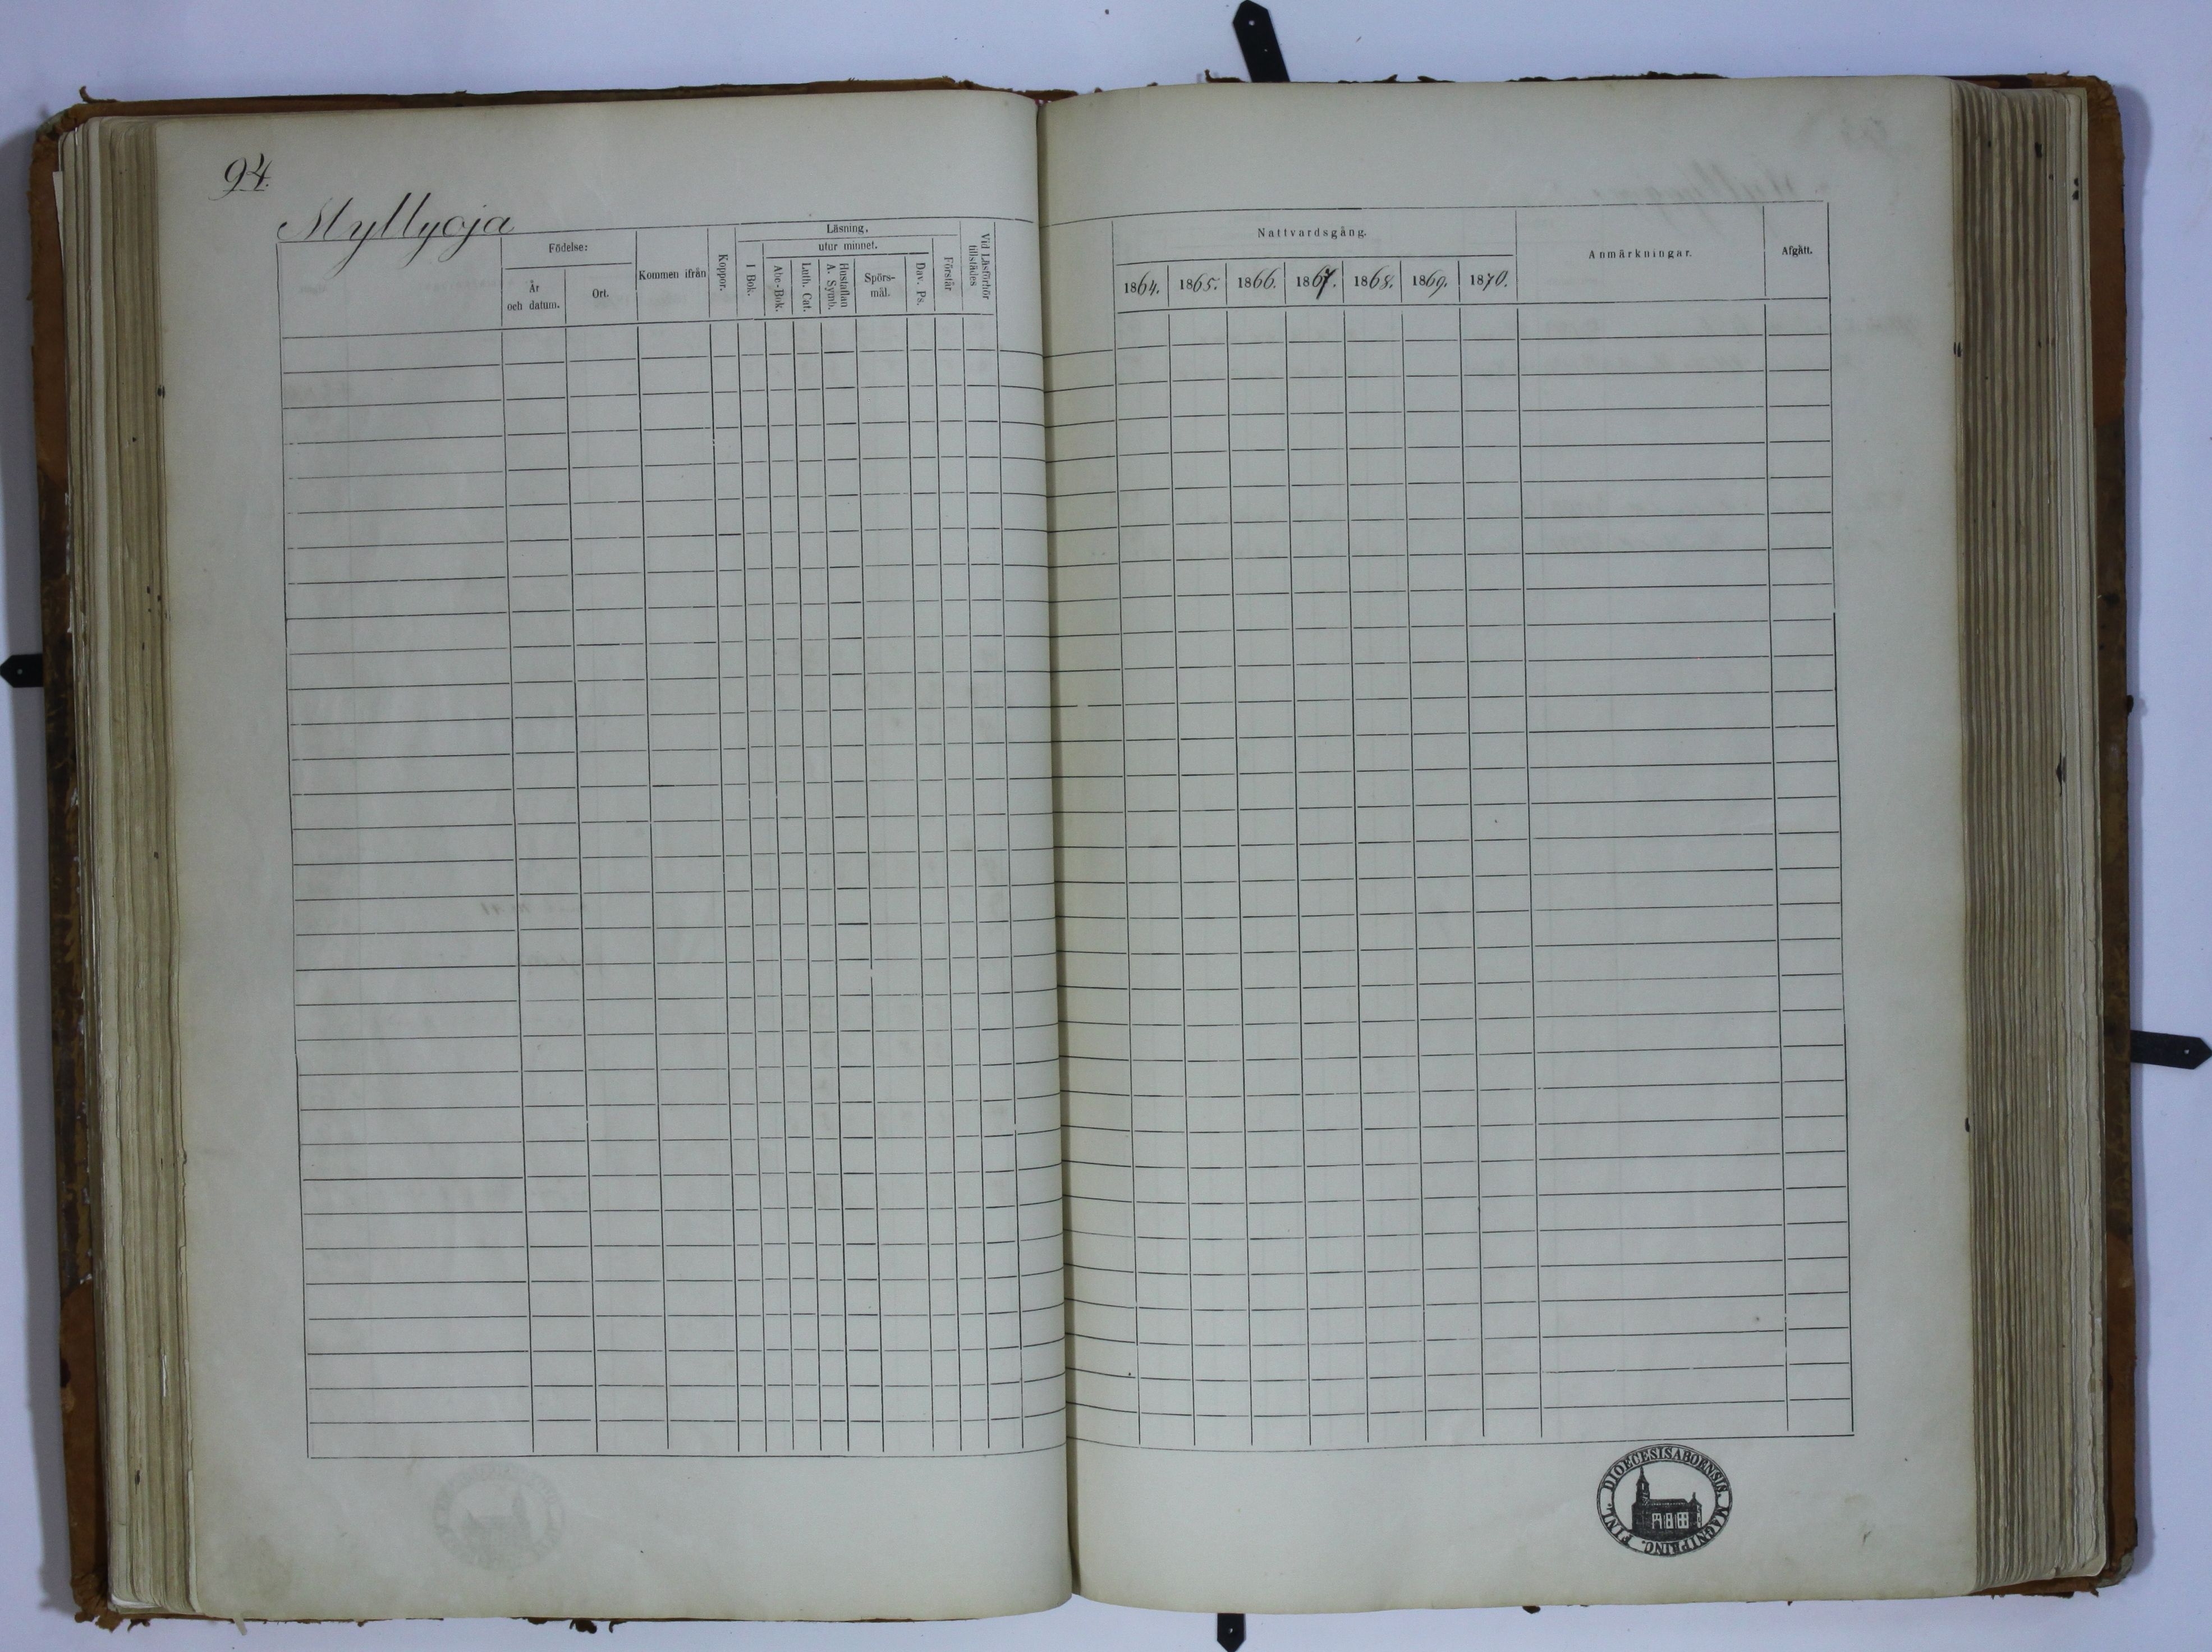 94.
Myllyoja
Födelse:
År
och datum.
Ort.
Kommen ifrån
Koppor.
Läsning.
I Bok.
utur minnet.
Abc-Bok.
Luth. Cat.
Hustaflan
A. Symb.
Spörs-
mål.
Dav. Ps.
Förstår
Vid Läsförhör
tillstädes
Nattvardsgång.
1864. 1865. 1866. 1867. 1868. 1869. 1870.
Anmärkningar.
Afgått.
DIOECESIS ABOENSIS. MAGNI PRINC. FINL.